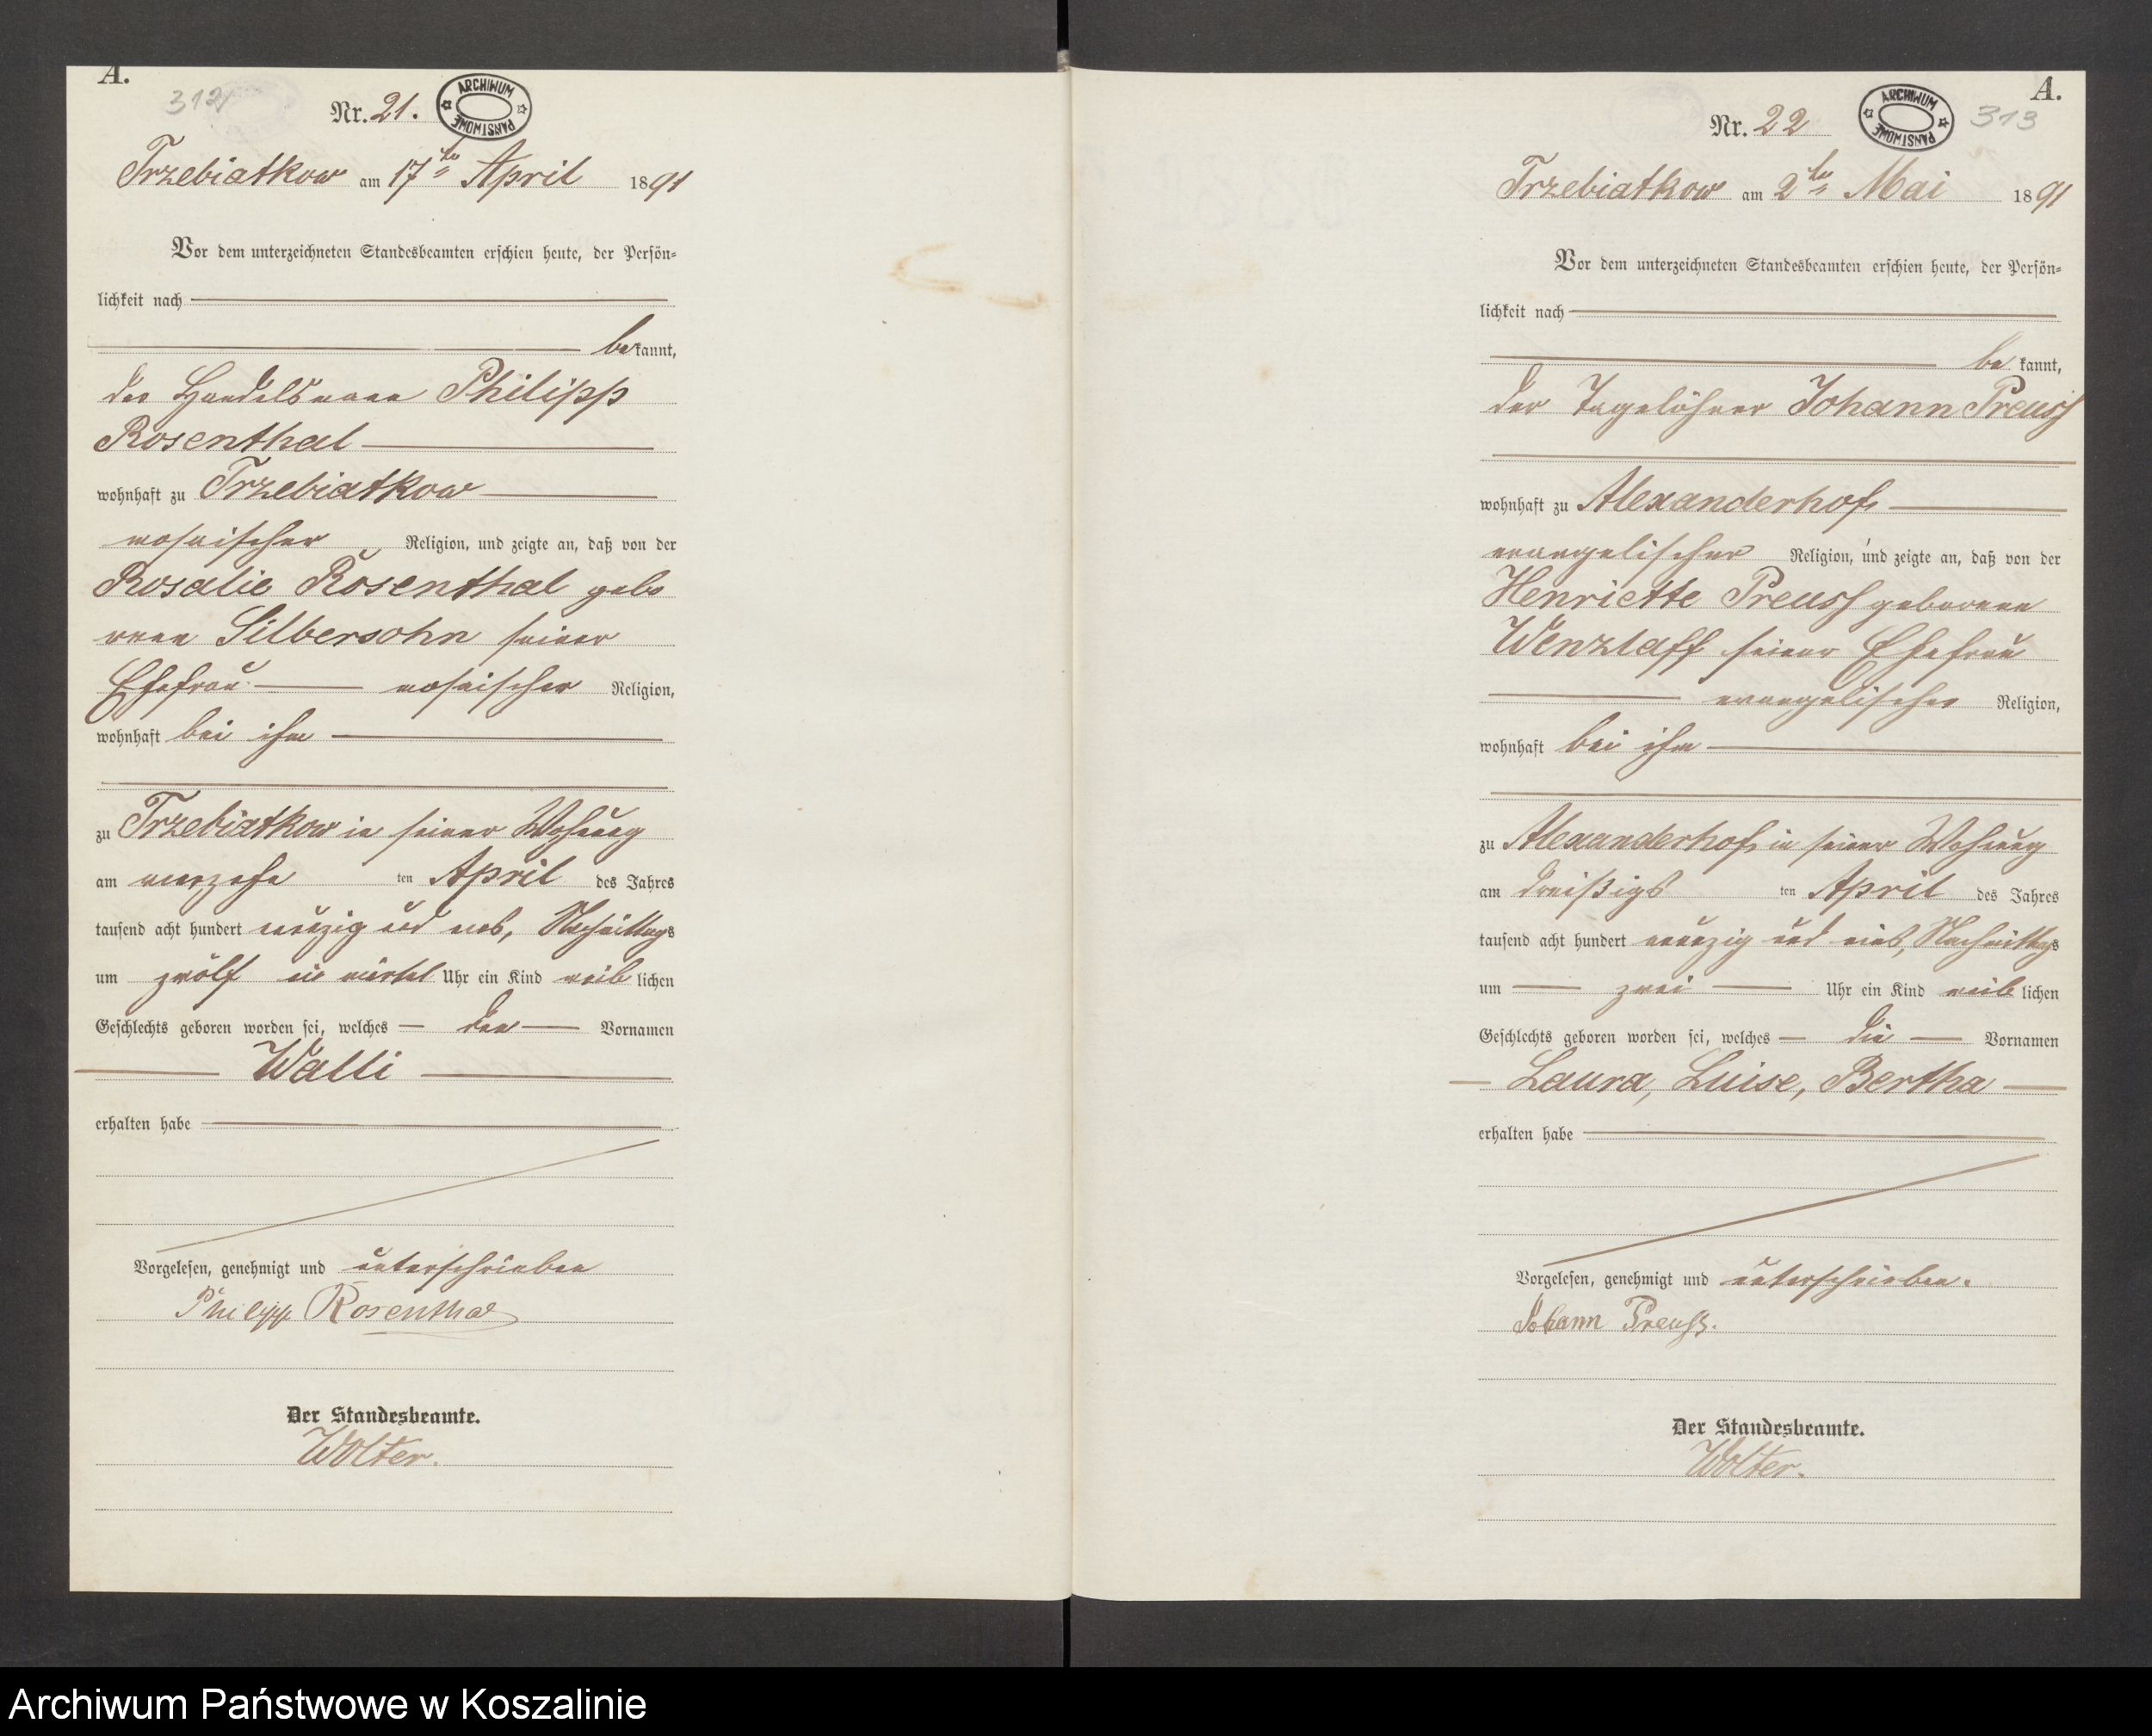 A.
312
Nr. 21.
ARCHIWUM PAŃSTWOWE
Trzebiatkow am 17ten April 1891
Vor dem unterzeichneten Standesbeamten erschien heute, der Persön-
lichkeit nach
bekannt,
der Handelsmann Philipp
Rosenthal
wohnhaft zu Trzebiatkow
mosaischer Religion, und zeigte an, daß von der
Rosalie Rosenthal gebo
renen Silbersohn seiner
Ehefrau mosaischer Religion,
wohnhaft bei ihm
zu Trzebiatkow in seiner Wohnung
am vierzehn ten April des Jahres
tausend acht hundert neunzig und eins, Nachmittags
um zwölf ein viertel Uhr ein Kind weib lichen
Geschlechts geboren worden sei, welches den Vornamen
Walli
erhalten habe
Vorgelesen, genehmigt und unterschrieben
Philipp Rosenthal
Der Standesbeamte.
Wolter.
A.
313
Nr. 22
ARCHIWUM PAŃSTWOWE
Trzebiatkow am 2ten Mai 1891
Vor dem unterzeichneten Standesbeamten erschien heute, der Persön-
lichkeit nach
be kannt,
der Tagelöhner Johann Preuss
wohnhaft zu Alexanderhof
evangelischer Religion, und zeigte an, daß von der
Henriette Preuss geborenen
Wenzlaff seiner Ehefrau
evangelischer Religion,
wohnhaft bei ihm
zu Alexanderhof in seiner Wohnung
am dreißigs ten April des Jahres
tausend acht hundert neunzig und eins, Nachmittags
um zwei Uhr ein Kind weib lichen
Geschlechts geboren worden sei, welches die Vornamen
Laura, Luise, Bertha
erhalten habe
Vorgelesen, genehmigt und unterschrieben.
Johann Preuß.
Der Standesbeamte.
Wolter.
Archiwum Państwowe w Koszalinie